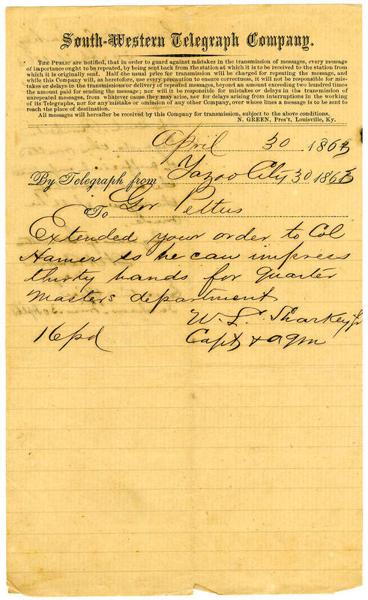 South-Western Telegraph Company.
THE PUBLIC are notified, that in order to guard against mistakes in the transmission of messages, every message
of importance ought to be repeated, by being sent back from the station at which it is to be received to the station from
which it is originally sent. Half the usual price for transmission will be charged for repeating the message, and
while this Company will, as heretofore, use every precaution to ensure correctness, it will not be responsible for mis-
takes or delays in the transmission or delivery of repeated messages, beyond an amount exceeding two hundred times
the amount paid for sending the message; nor will it be responsible for mistakes or delays in the transmission of
unrepeated messages, from whatever cause they may arise, nor for delays arising from interruptions in the working
of its Telegraphs, nor for any mistake or omission of any other Company, over whose lines a message is to be sent to
reach the place of destination.
All messages will hereafter be received by this Company for transmission, subject to the above conditions.
N. GREEN, Pres't, Louisville, Ky.
April 30 1863
By Telegraph from Yazoo City 30 1863
To Gov Pettus
Extended your order to Col
Hamer so he can impress
thirty hands for quarter
masters department
W. L. Sharkey Jr
16 pd Capt & aqm